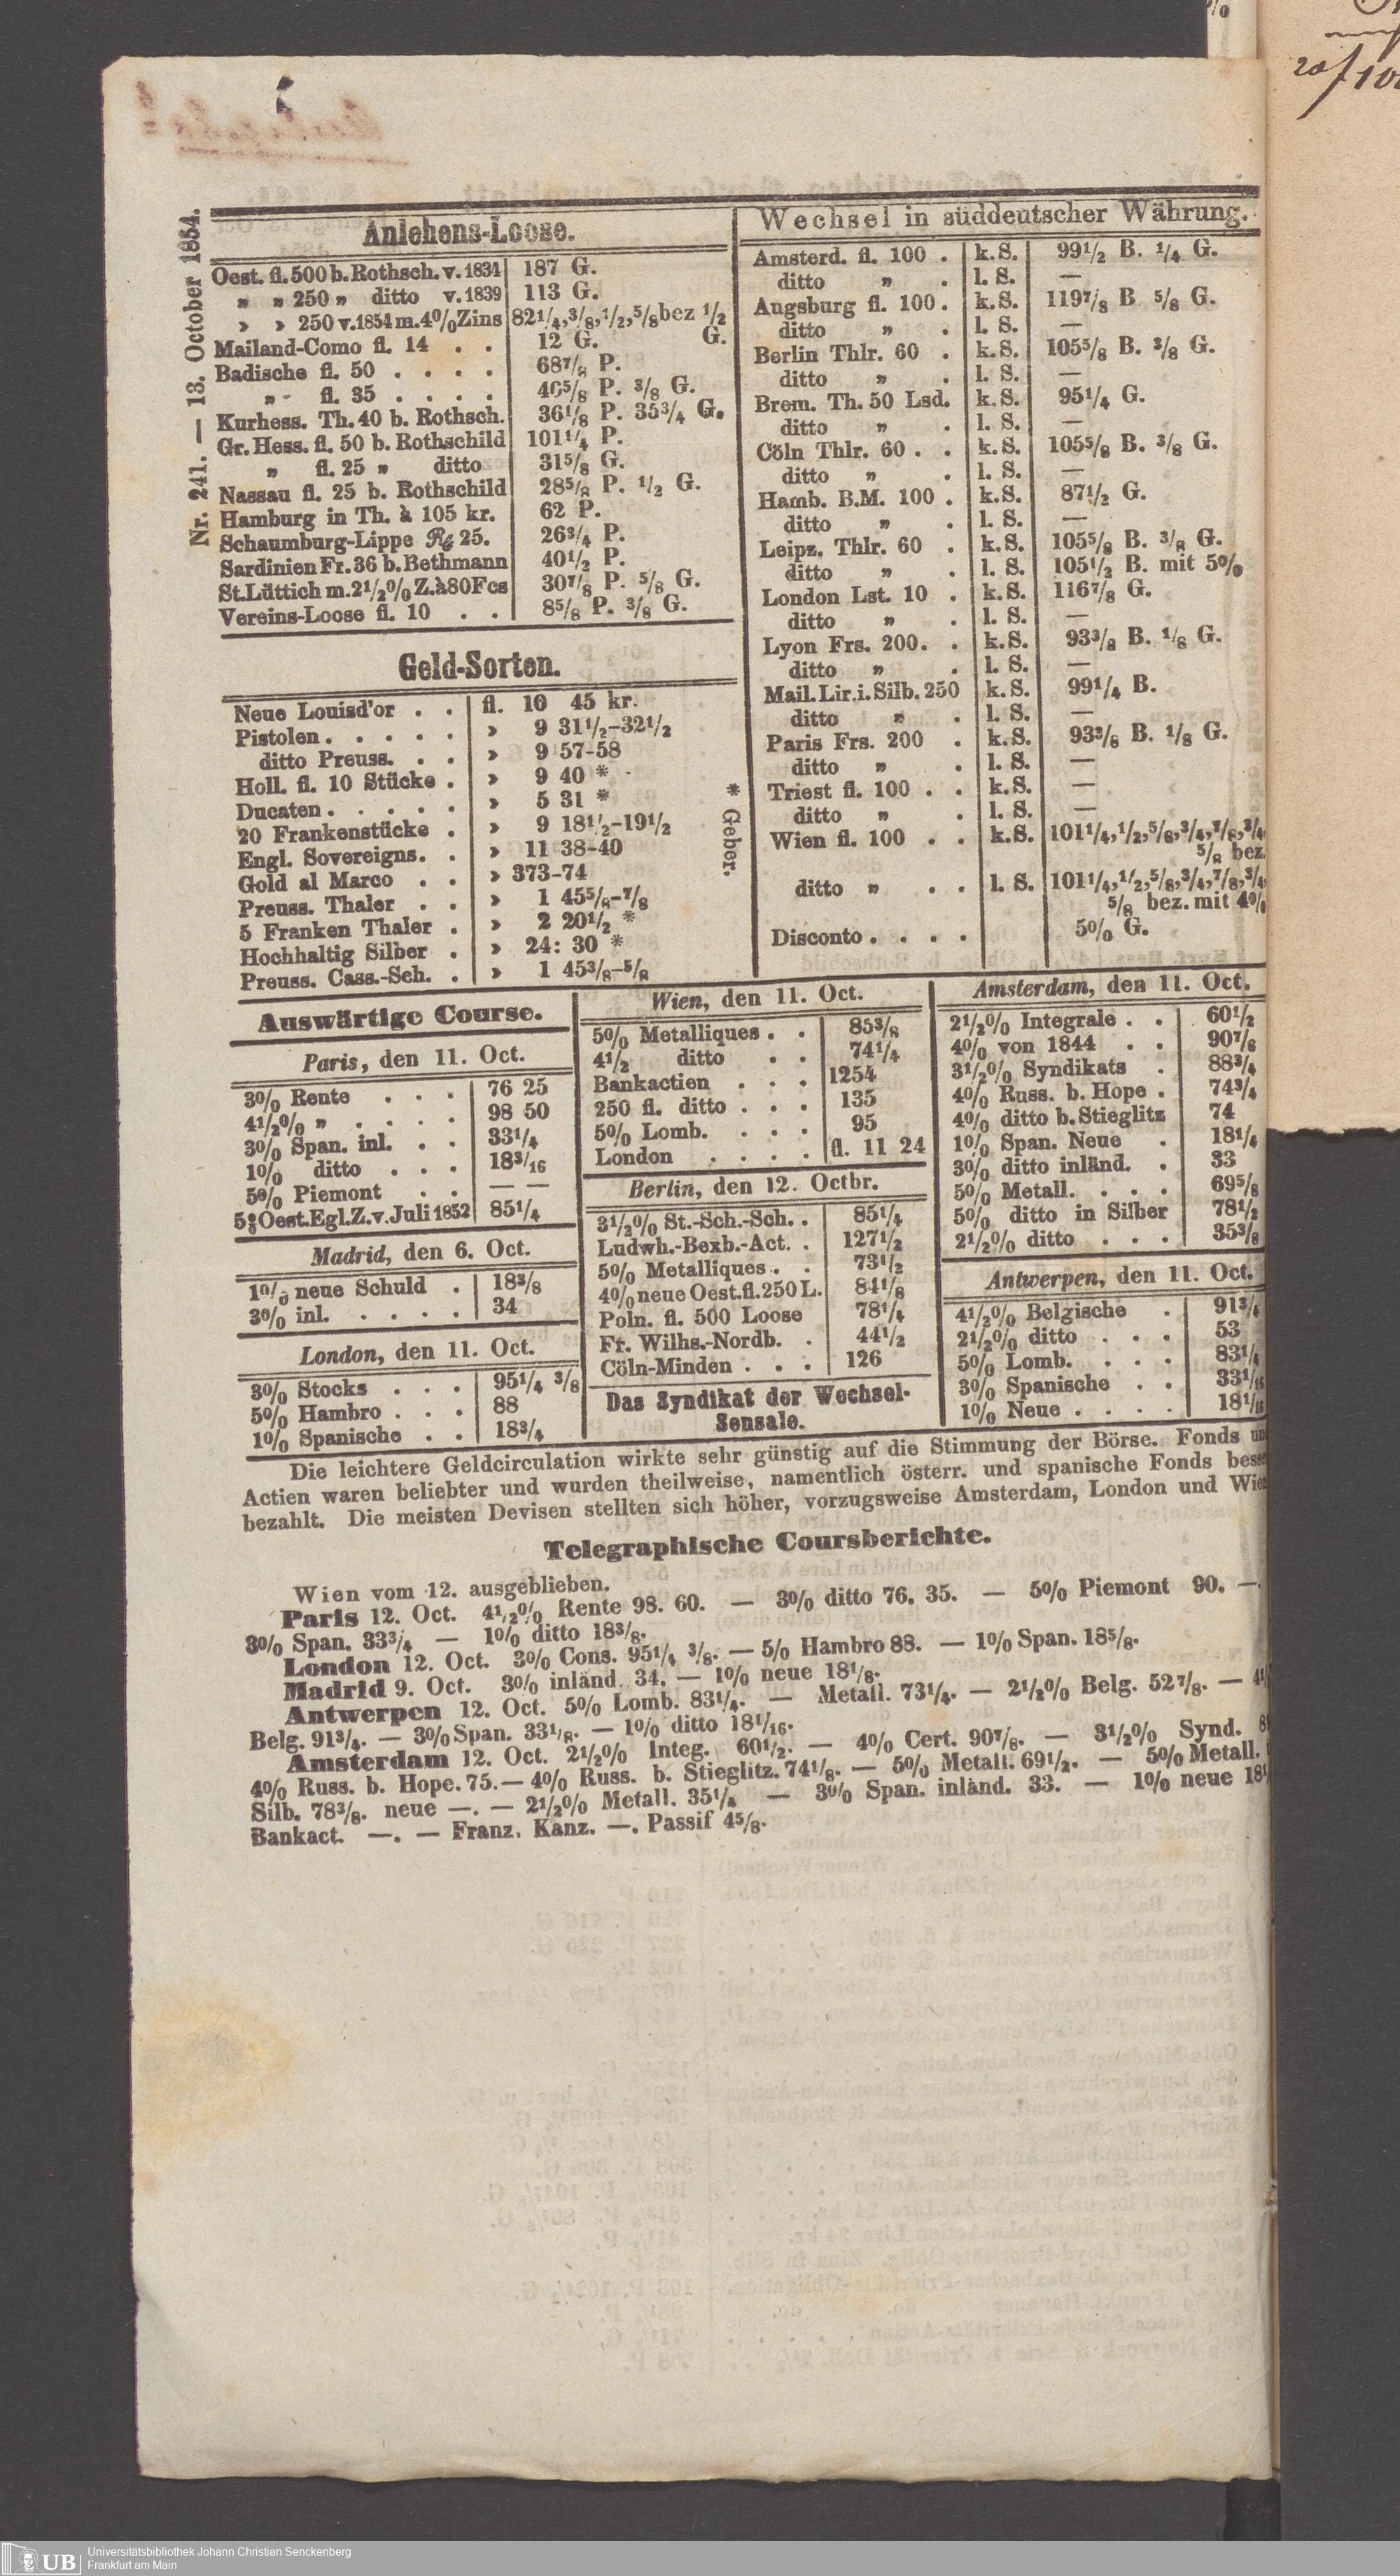 Nr. 241. — 13. October 1854.
Anlehens-Loose.
Oest. fl. 500 b. Rothsch. v. 1834 187 G.
„ „ 250 „ ditto v. 1839 113 G.
» » 250 v. 1854 m. 4% Zins 82¼,⅜,½,⅝ bez ½ G.
Mailand-Como fl. 14 . . 12 G.
Badische fl. 50 . . . . 68⅞ P.
„ fl. 35 . . . . 40⅝ P. ⅜ G.
Kurhess. Th. 40 b. Rothsch. 36⅛ P. 35¾ G.
Gr. Hess. fl. 50 b. Rothschild 101¼ P.
„ fl. 25 „ ditto 31⅝ G.
Nassau fl. 25 b. Rothschild 28⅝ P. ½ G.
Hamburg in Th. à 105 kr. 62 P.
Schaumburg-Lippe Rß 25. 26¾ P.
Sardinien Fr. 36 b. Bethmann 40½ P.
St. Lüttich m. 2½% Z. à 80 Fcs 30⅞ P. ⅝ G.
Vereins-Loose fl. 10 . . 8⅝ P. ⅜ G.
Geld-Sorten.
Neue Louisd'or . . fl. 10 45 kr.
Pistolen . . . . . » 9 31½-32½
ditto Preuss. . . » 9 57-58
Holl. fl. 10 Stücke . » 9 40 *
Ducaten . . . . . » 5 31 *
20 Frankenstücke . » 9 18½-19½
Engl. Sovereigns. . » 11 38-40
Gold al Marco . . » 373-74
Preuss. Thaler . . » 1 45⅝-⅞
5 Franken Thaler . » 2 20½ *
Hochhaltig Silber . » 24: 30 *
Preuss. Cass.-Sch. . » 1 45⅜-⅝
* Geber.
Wechsel in süddeutscher Währung.
Amsterd. fl. 100 . k. S. 99½ B. ¼ G.
ditto „ . l. S. —
Augsburg fl. 100 . k. S. 119⅞ B ⅝ G.
ditto „ . l. S. —
Berlin Thlr. 60 . k. S. 105⅝ B. ⅜ G.
ditto „ . l. S. —
Brem. Th. 50 Lsd. k. S. 95¼ G.
ditto „ . l. S. —
Cöln Thlr. 60 . . k. S. 105⅝ B. ⅜ G.
ditto „ . l. S. —
Hamb. B.M. 100 . k. S. 87½ G.
ditto „ . l. S. —
Leipz. Thlr. 60 . k. S. 105⅝ B. ⅜ G.
ditto „ . l. S. 105½ B. mit 5%
London Lst. 10 . k. S. 116⅞ G.
ditto „ . l. S. —
Lyon Frs. 200. . k. S. 93⅜ B. ⅛ G.
ditto „ . l. S. —
Mail. Lir. i. Silb. 250 k. S. 99¼ B.
ditto „ . l. S. —
Paris Frs. 200 . k. S. 93⅜ B. ⅛ G.
ditto „ . l. S. —
Triest fl. 100 . . k. S. —
ditto „ . l. S. —
Wien fl. 100 . . k. S. 101¼,½,⅝,¾,⅞,¾
⅝ bez.
ditto „ . . l. S. 101¼,½,⅝,¾,⅞,¾
⅝ bez. mit 4%
Disconto . . . . 5% G.
Auswärtige Course.
Paris, den 11. Oct.
3% Rente . . . 76 25
4½% „ . . . . 98 50
3% Span. inl. . . 33¼
1% ditto . . . 18³/₁₆
5% Piemont . . — —
5% Oest. Egl. Z. v. Juli 1852 85¼
Madrid, den 6. Oct.
1% neue Schuld . 18⅜
3% inl. . . . . 34
London, den 11. Oct.
3% Stocks . . . 95¼ ⅜
5% Hambro . . . 88
1% Spanische . . 18¾
Wien, den 11. Oct.
5% Metalliques . . 85⅜
4½ ditto . . 74¼
Bankactien . . . 1254
250 fl. ditto . . . 135
5% Lomb. . . . 95
London . . . . fl. 11 24
Berlin, den 12. Octbr.
3½% St.-Sch.-Sch. . 85¼
Ludwh.-Bexb.-Act. . 127½
5% Metalliques . . 73½
4% neue Oest. fl. 250 L. 84⅛
Poln. fl. 500 Loose 78¼
Fr. Wilhs.-Nordb. . 44½
Cöln-Minden . . . 126
Das Syndikat der Wechsel-
Sensale.
Amsterdam, den 11. Oct.
2½% Integrale . . 60½
4% von 1844 . . 90⅞
3½% Syndikats . 88¾
4% Russ. b. Hope . 74¾
4% ditto b. Stieglitz 74
1% Span. Neue . 18¼
3% ditto inländ. . 33
5% Metall. . . . 69⅝
5% ditto in Silber 78½
2½% ditto . . . 35⅜
Antwerpen, den 11. Oct.
4½% Belgische . 91¾
2½% ditto . . . 53
5% Lomb. . . . 83¼
3% Spanische . . 33¹/₁₆
1% Neue . . . . 18¹/₁₆
Die leichtere Geldcirculation wirkte sehr günstig auf die Stimmung der Börse. Fonds un
Actien waren beliebter und wurden theilweise, namentlich österr. und spanische Fonds besse
bezahlt. Die meisten Devisen stellten sich höher, vorzugsweise Amsterdam, London und Wien
Telegraphische Coursberichte.
Wien vom 12. ausgeblieben.
Paris 12. Oct. 4½% Rente 98. 60. — 3% ditto 76. 35. — 5% Piemont 90. —.
3% Span. 33¾ — 1% ditto 18⅜.
London 12. Oct. 3% Cons. 95¼ ⅜. — 5/0 Hambro 88. — 1% Span. 18⅝.
Madrid 9. Oct. 3% inländ. 34. — 1% neue 18⅛.
Antwerpen 12. Oct. 5% Lomb. 83¼. — Metall. 73¼. — 2½% Belg. 52⅞. —
Belg. 91¾. — 3% Span. 33⅛. — 1% ditto 18¹/₁₆.
Amsterdam 12. Oct. 2½% Integ. 60½. — 4% Cert. 90⅞. — 3½% Synd.
4% Russ. b. Hope. 75. — 4% Russ. b. Stieglitz. 74⅛. — 5% Metall. 69½. — 5% Metall.
Silb. 78⅜. neue —. — 2½% Metall. 35¼ — 3% Span. inländ. 33. — 1% neue
Bankact. —. — Franz. Kanz. —. Passif 4⅝.
UB
Universitätsbibliothek Johann Christian Senckenberg
Frankfurt am Main